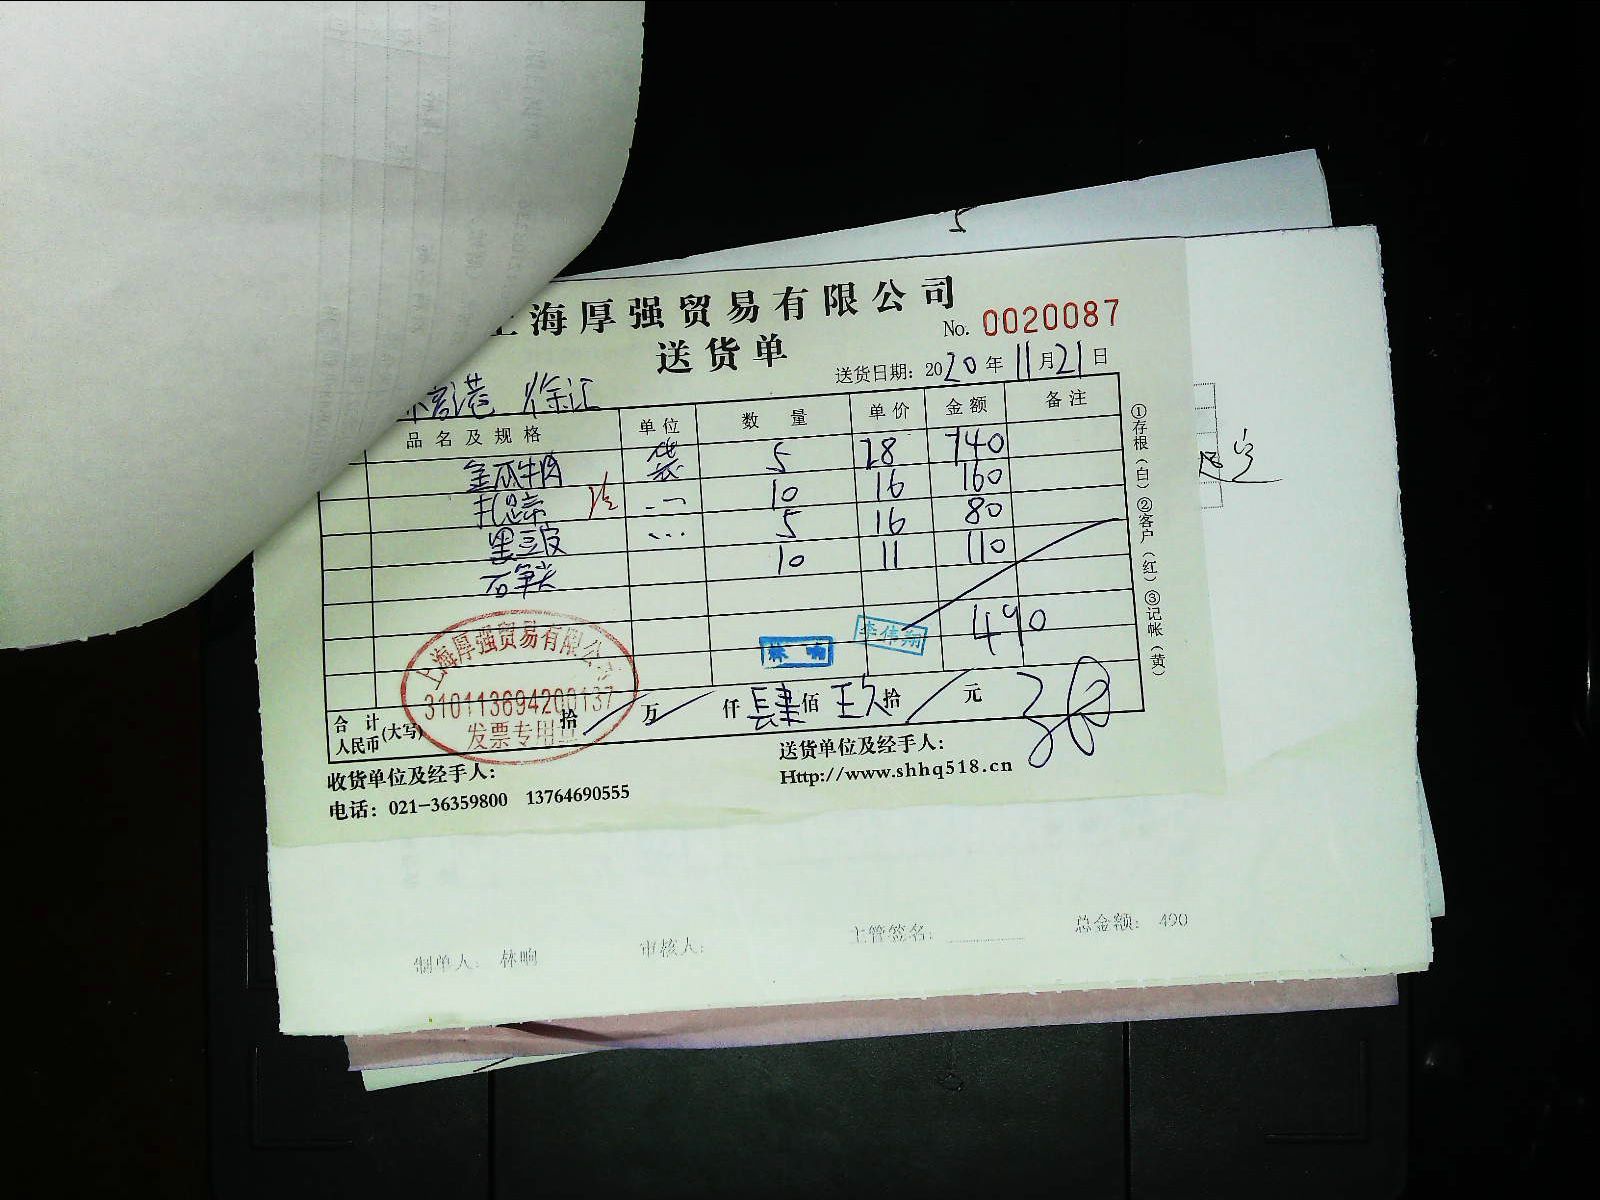 5
上海厚强贸易有限公司
No. 0020087
送货单
送货日期: 2020年11月21日
港 徐汇
品名及规格 单位 数量 单价 金额 备注
金瓜牛肉 袋 5 28 140
扎蹄 10 16 160
黑豆皮 5 16 80
石笋尖 10 11 110
490
林响 李伟翔
上海厚强贸易有限公司
310113694200137
发票专用章
合计 人民币(大写) 拾 万 仟 肆 佰 玖 拾 元
收货单位及经手人:
送货单位及经手人:
电话: 021-36359800 13764690555
Http://www.shhq518.cn
①存根(白) ②客户(红) ③记帐(黄)
制单人: 林响 审核人: 主管签名: 总金额: 490